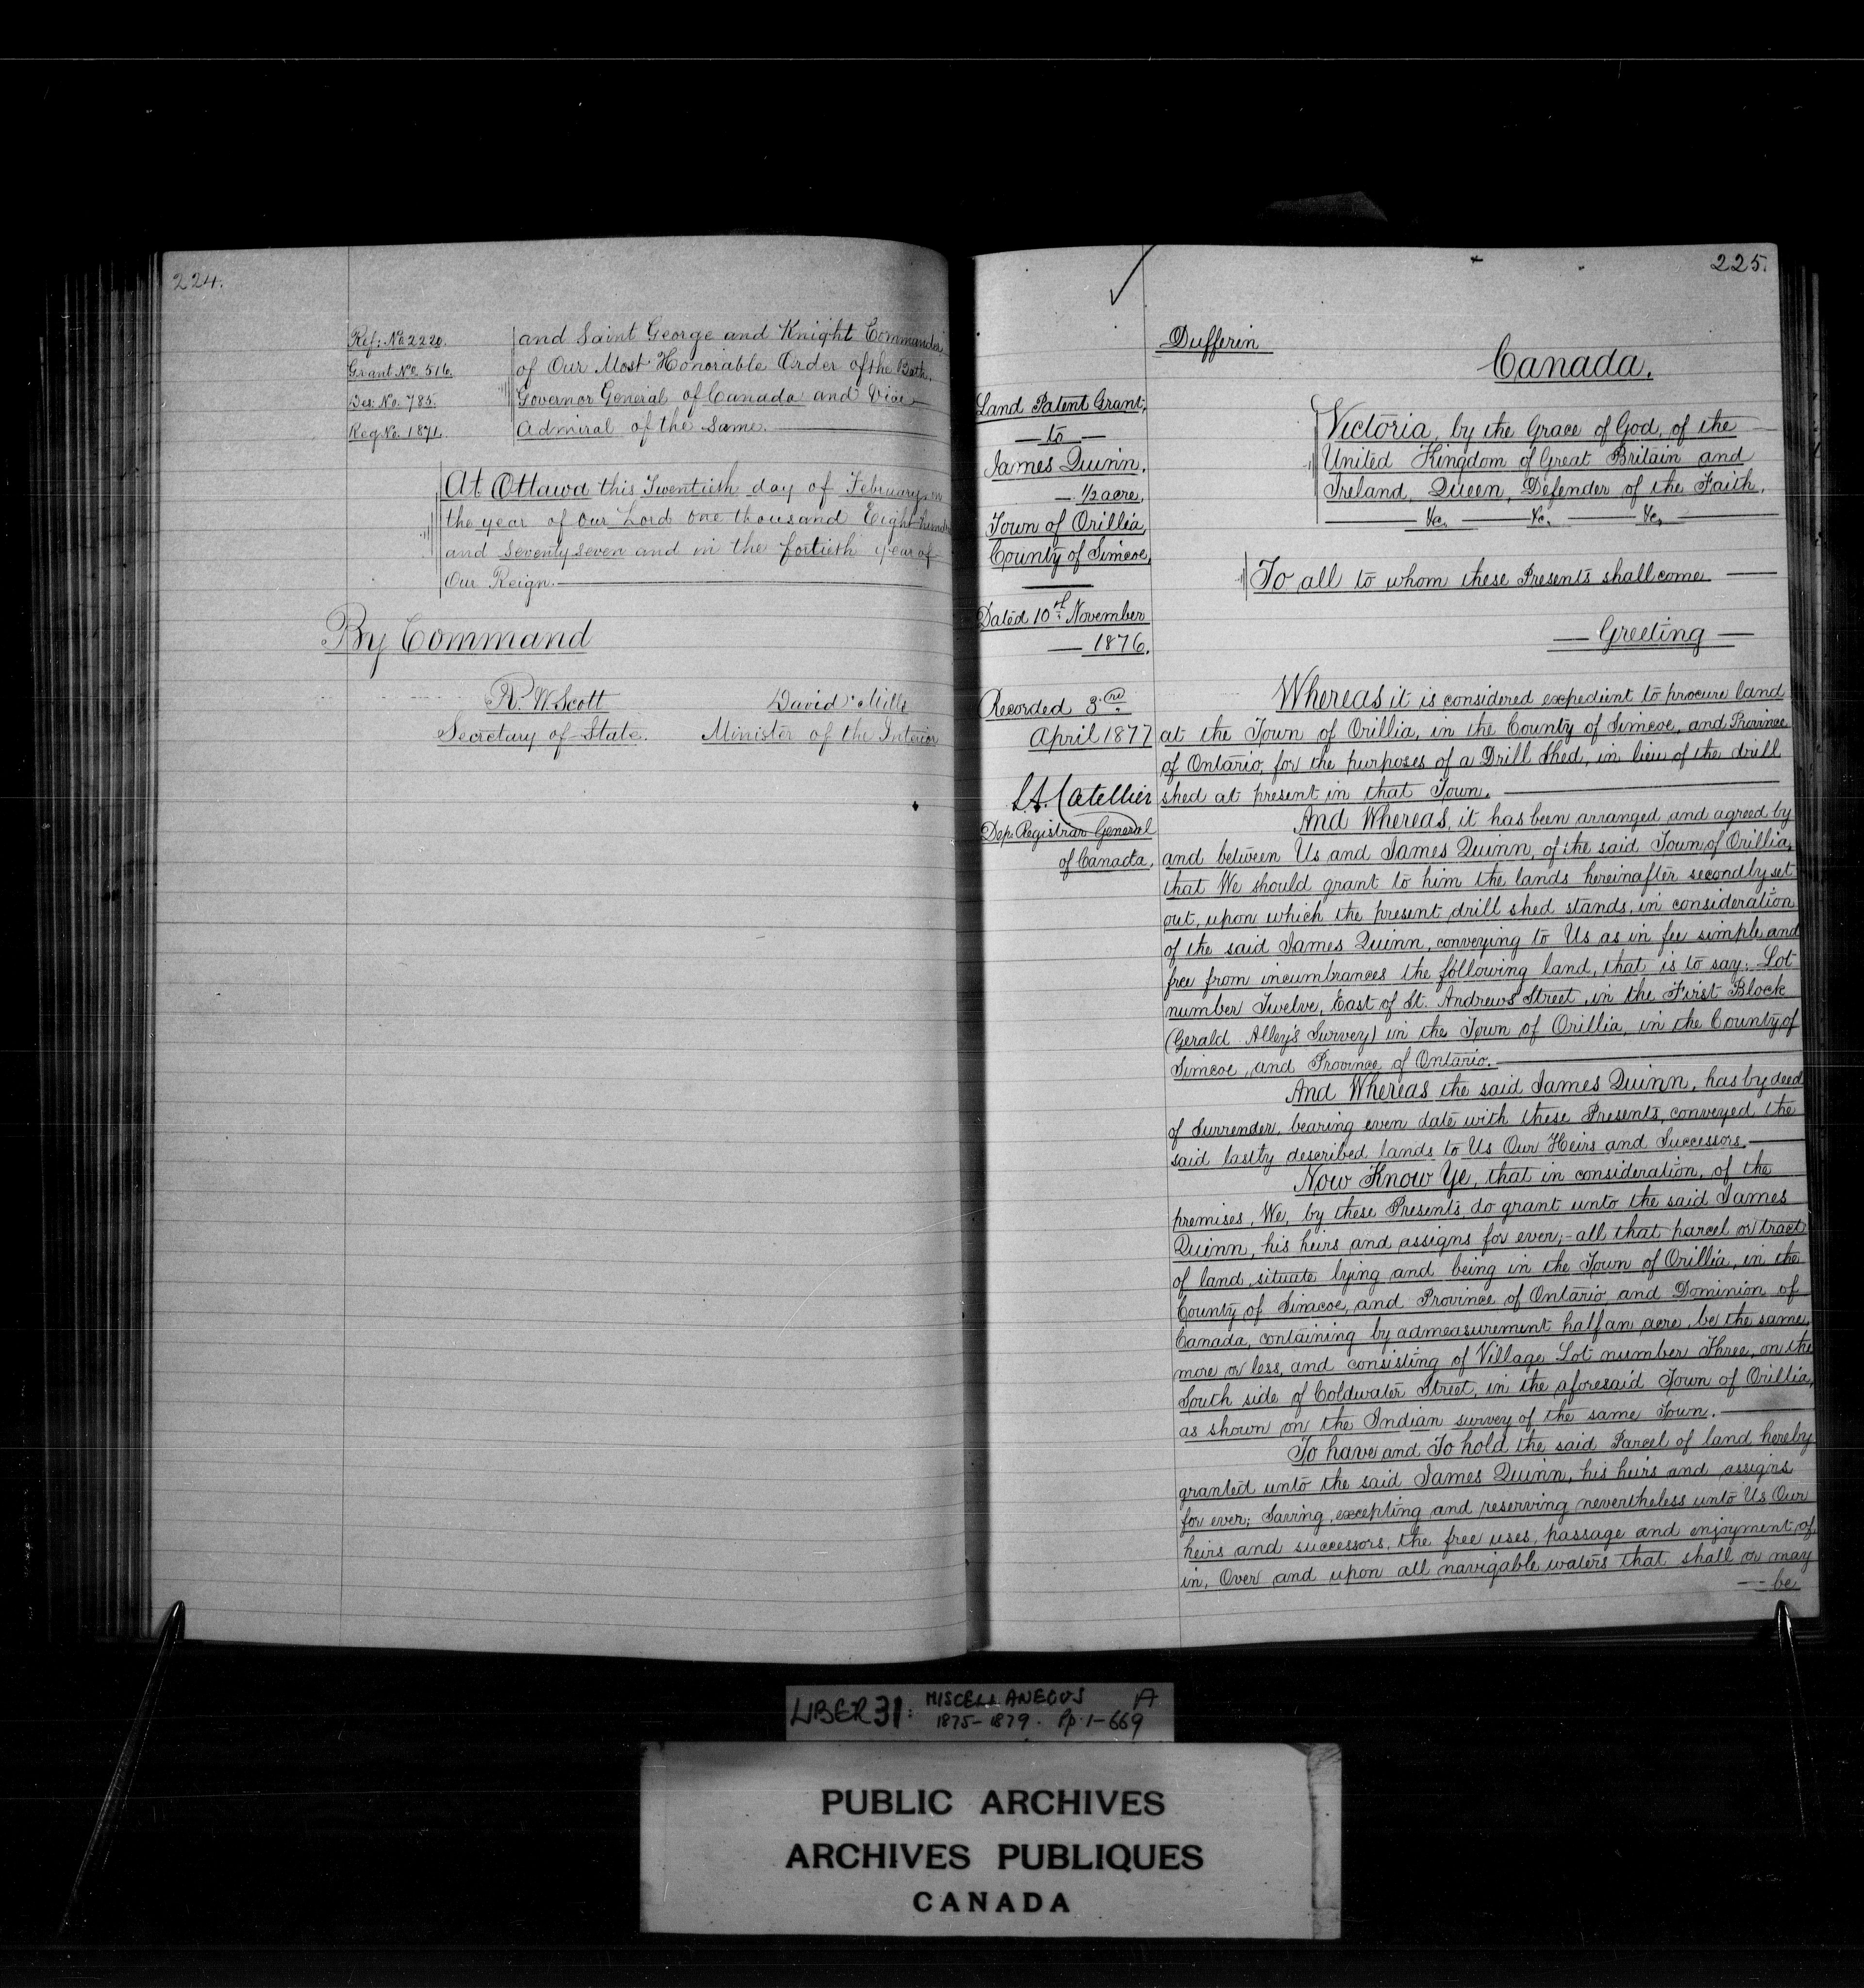 224.
Ref: No 2220.
Grant No. 516.
Des: No. 785.
Reg No. 1871.
and Saint George and Knight Commander
of Our Most Honorable Order of the Bath,
Governor General of Canada and Vice
Admiral of the Same.
At Ottawa this Twentieth day of February in
the year of Our Lord one thousand Eight hundred
and Seventy seven and in the fortieth year of
Our Reign.
By Command
R. W. Scott
Secretary of State.
David Mills
Minister of the Interior
225.
Dufferin
Canada.
Land Patent Grant,
to
James Quinn.
1/2 acre,
Town of Orillia,
County of Simcoe,
Dated 10th November
1876.
Recorded 3rd
April 1877
L.A. Catellier
Dep. Registrar General
of Canada.
Victoria, by the Grace of God, of the
United Kingdom of Great Britain and
Ireland, Queen, Defender of the Faith,
&c. &c. &c.
To all to whom these Presents shall come
Greeting
Whereas it is considered expedient to procure land
at the Town of Orillia, in the County of Simcoe, and Province
of Ontario, for the purposes of a Drill Shed, in lieu of the drill
shed at present in that Town.
And Whereas, it has been arranged and agreed by
and between Us and James Quinn, of the said Town of Orillia,
that We should grant to him the lands hereinafter secondly set
out, upon which the present drill shed stands, in consideration
of the said James Quinn, conveying to Us as in fee simple and
free from incumbrances the following land, that is to say: Lot
number Twelve, East of St. Andrews' Street, in the First Block
(Gerald Alley's Survey) in the Town of Orillia, in the County of
Simcoe, and Province of Ontario.
And Whereas the said James Quinn, has by deed
of Surrender, bearing even date with these Presents, conveyed the
said lastly described lands to Us Our Heirs and Successors.
Now Know Ye, that in consideration, of the
premises, We, by these Presents, do grant unto the said James
Quinn, his heirs and assigns for ever; - all that parcel or tract
of land, situate lying and being in the Town of Orillia, in the
County of Simcoe, and Province of Ontario, and Dominion of
Canada, containing by admeasurement half an acre, be the same,
more or less, and consisting of Village Lot number Three, on the
South side of Coldwater Street, in the aforesaid Town of Orillia,
as shown on the Indian survey of the same Town.
To have and To hold the said Parcel of land hereby
granted unto the said James Quinn, his heirs and assigns
for ever; Saving, excepting and reserving nevertheless unto Us Our
heirs and successors, the free uses, passage and enjoyment, of,
in, Over and upon all navigable waters that shall or may
be
LIBER 31: MISCELLANEOUS A
1875-1879. Pp. 1-669
PUBLIC ARCHIVES
ARCHIVES PUBLIQUES
CANADA